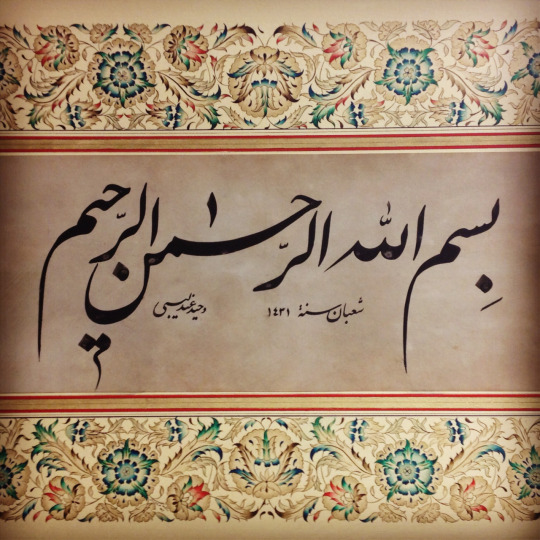 بِسم الله الرّحمٰن الرّحیم
شعبان سنة ١٤٣١
وحید عندلیبی